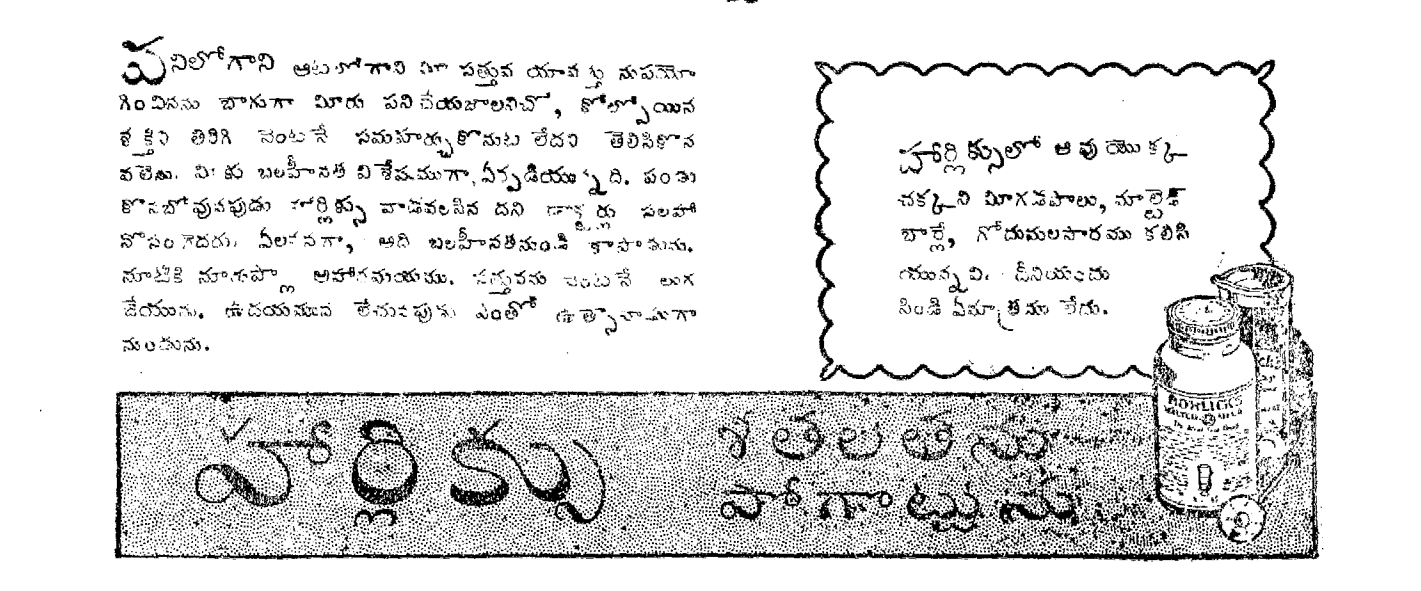 పనిలోగాని ఆటలోగాని మీ సత్తువ యావత్తు నుపయో
గించినను బాగుగా మీరు పని చేయజాలనిచో, కోల్పోయిన
శక్తిని తిరిగి వెంటనే సమకూర్చుకొనుట లేదని తెలిసికొన
వలెను. మీకు బలహీనత విశేషముగా, ఏర్పడియున్నది. పండు
కొనబోవునపుడు హార్లిక్సు వాడవలసిన దని డాక్టర్లు సలహా
నొసంగెదరు. ఏలనగా, అది బలహీనతనుండి కాపాడును.
నూటికి నూరుపాళ్లు ఆహారమయము. సత్తువను వెంటనే
చేయును. ఉదయమున లేచునపుడు ఎంతో ఉత్సాహముగా
నుండును.
హార్లిక్సులో ఆవు యొక్క
చక్కని మీగడపాలు, మాల్టెడ్
బార్లీ, గోదుమలసారము కలిసి
యున్నవి. దీనియందు
పిండి ఏమాత్రము లేదు.
హార్లిక్సు
శతలతను
పోగొట్టును
HORLICK'S
MALTED MILK